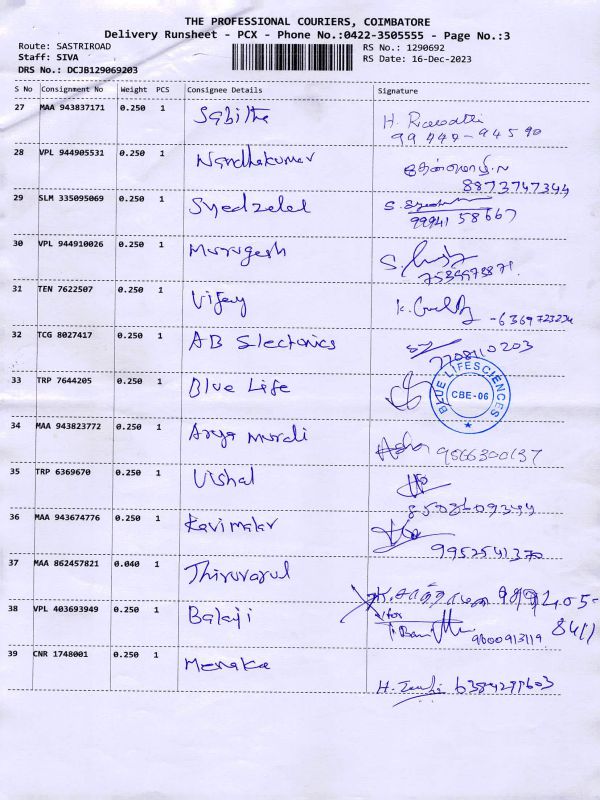 THE PROFESSIONAL COURIERS, COIMBATORE
Delivery Runsheet - PCX - Phone No.:0422-3505555 - Page No.:3
Route: SASTRIROAD
RS No.: 1290692
Staff: SIVA
RS Date: 16-Dec-2023
DRS No.: DCJB129069203
S No Consignment No Weight PCS Consignee Details Signature
27 MAA 943837171 0.250 1 Sabitha
H.
99449-94590
28 VPL 944905531 0.250 1 Nandhakumar
8873747344
29 SLM 335095069 0.250 1 Syedzelel S.
99941 58667
30 VPL 944910026 0.250 1 Murugesh
31 TEN 7622507 0.250 1 Vijay
K.
-6369723234
32 TCG 8027417 0.250 1 AB Slectonics
7708110203
33 TRP 7644205 0.250 1 Blue Life
BLUE LIFESCIENCES
CBE-06
34 MAA 943823772 0.250 1 Arya murali
9566300137
35 TRP 6369670 0.250 1 Vishal
36 MAA 943674776 0.250 1 Ravimalar
9952541370
37 MAA 862457821 0.040 1 Thiruvarul
38 VPL 403693949 0.250 1 Balaji
9600913119
39 CNR 1748001 0.250 1 Menaka
H.